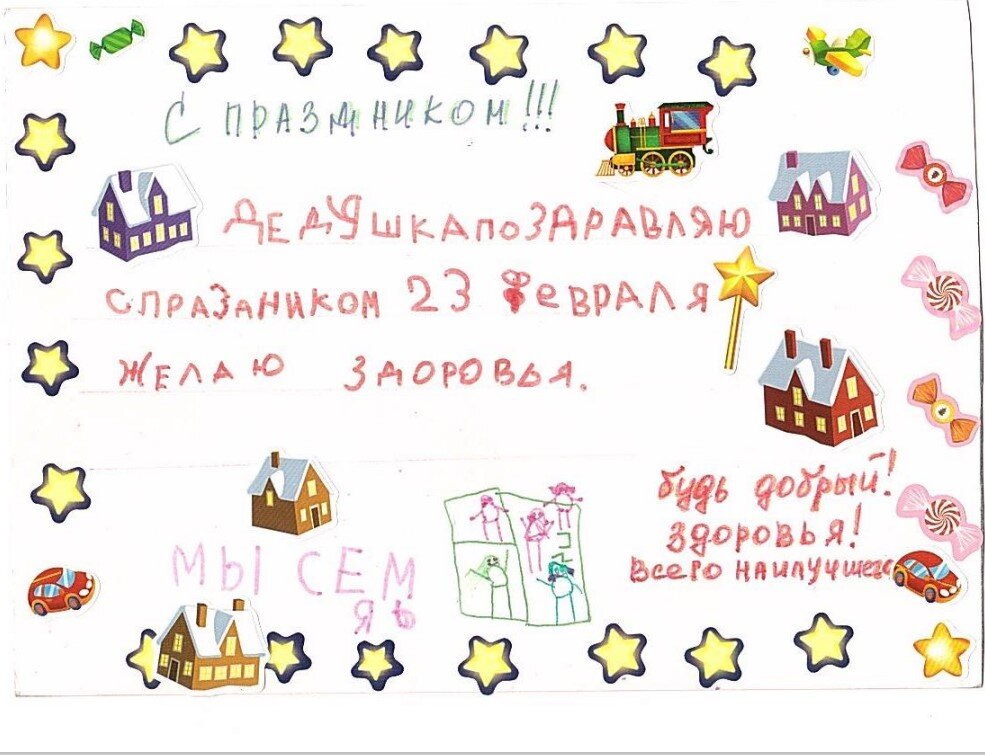 С ПРАЗДНИКОМ!!!
ДЕДУШКАПОЗДРАВЛЯЮ
СПРАЗДНИКОМ 23 ФЕВРАЛЯ
ЖЕЛАЮ ЗДОРОВЬЯ.
будь добрый!
здоровья!
Всего наилучшего
МЫ СЕМ
ЯЬ